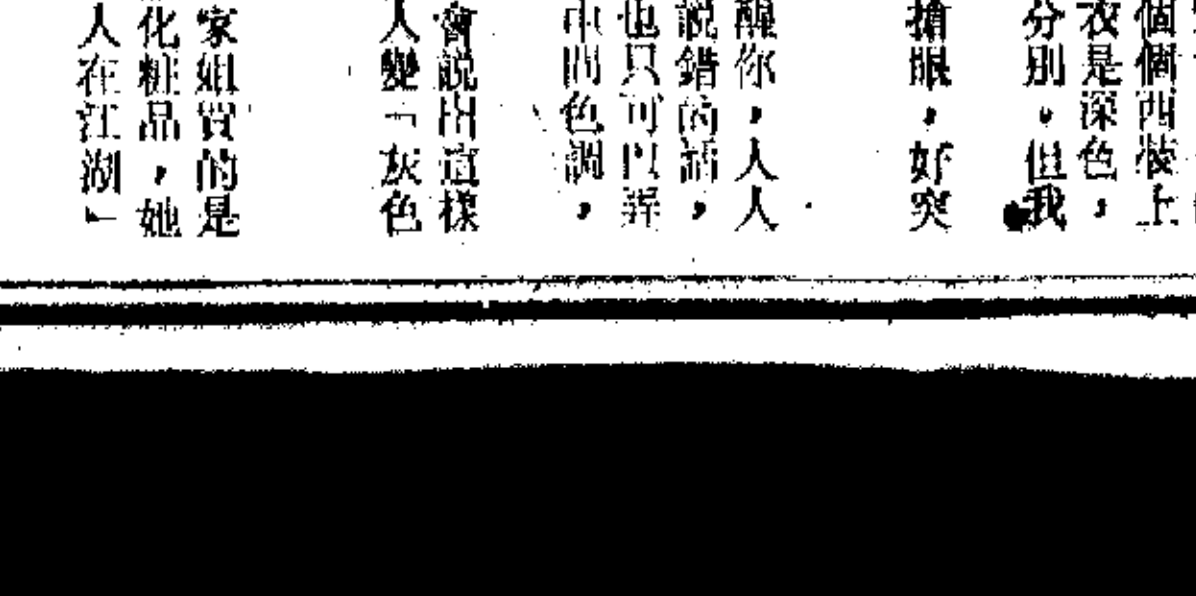 個個西裝上
衣是深色，
分別。但我
搶眼，好突
醒你，人人
說錯的話，
也只可以弄
中間色調，
會說出這樣
人變「灰色
家姐買的是
化粧品，她
人在江湖」